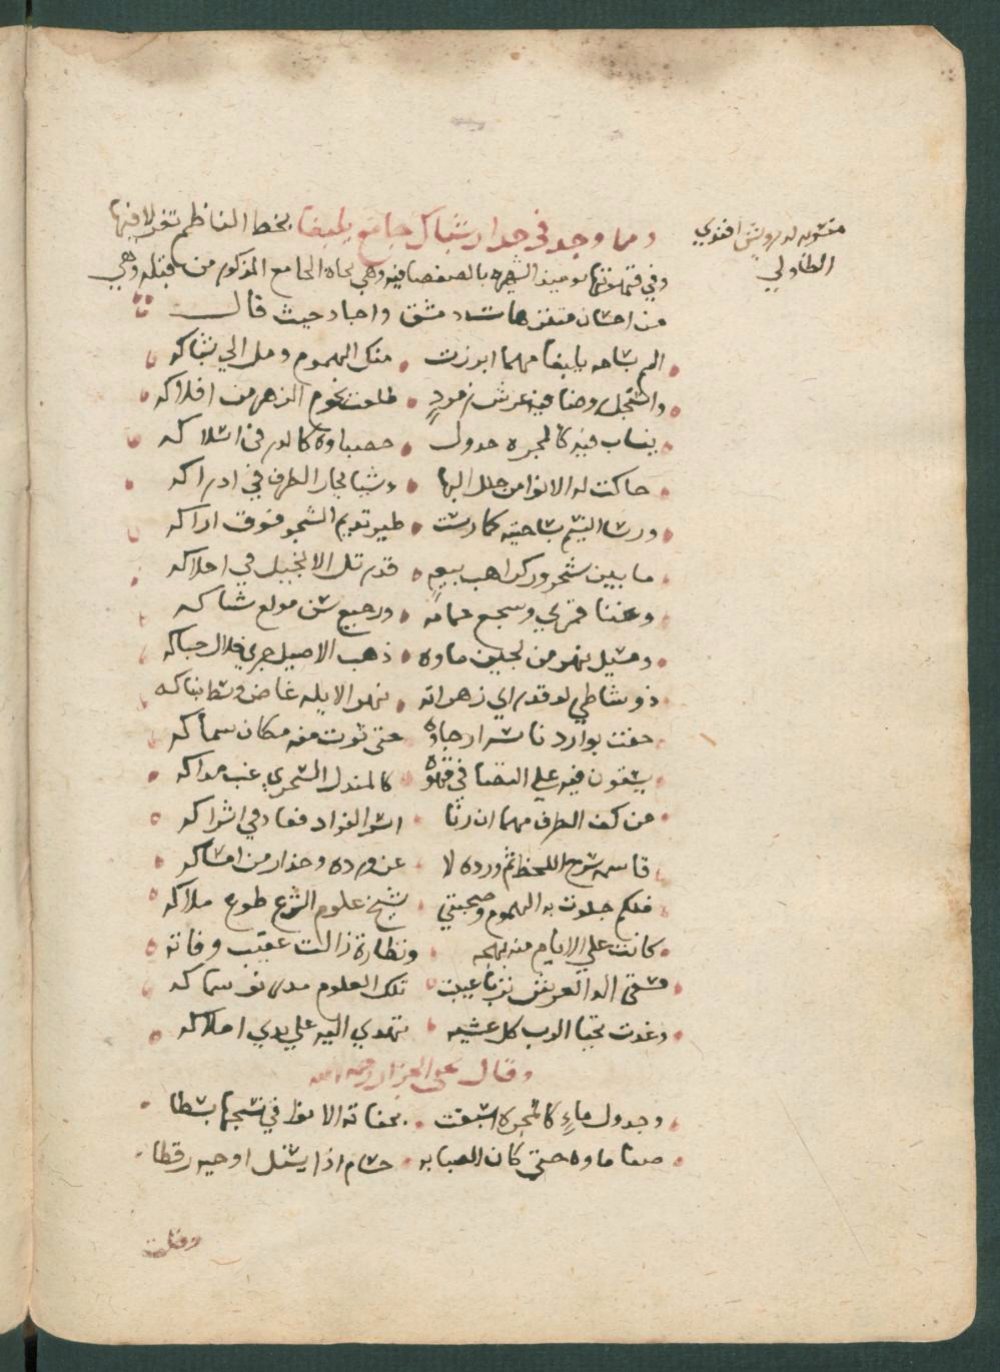 ومما وجد في جدار شباك جامع يلبغا بخط الناظم تغزلا فيها
منسوبه لدرويش افندي
الطالوي
وفي قهوتها يوميذ الشهيره بالصفصافيه وهي تجاه الجامع المذكور من قبله وهي
من احسان متنزهات دمشق واجاد حيث قال
الم بساحه يلبغا مهما ابرزت • منك الهموم ومل الي شباكه
واستجل روضا فيه عرش زمرد • طلعت نجوم الزهر من افلاكه
ينساب فيه كالمجره جدول • حصباوه كالدر في اسلاكه
حاكت له الانوا من حلل البها • وشيا يحار الطرف في ادراكه
ورسا النسيم بساحتيه كما رست • طير تديم الشجو فوق اراكه
ما بين شحرور كراهب بيعه • قد رتل الانجيل في احلاكه
وغنا قمري وسجع حمامه • ورجيع شن مولع شاكه
ومسيل نهر من لجين ماوه • ذهب الاصيل جري خلال حباكه
ذو شاطي لو قد راي زهراته • نهر الابله غاض وسط بناكه
حفت بوارد ناسه ارجاوه حتى توت منه مكان سماكه
يسقون فيه علي الصفا في قهوه كالمندل الشحري غب مداكه
من كف الطرف مهما ان رنا اسر الفواد فعاد في اشراكه
قاسمه شرح اللحظ ثم ورده لا عن ورده وحذار من امساكه
فلكم جلوت به الهموم وصحبتي بشيخ علوم الشرع طوع ملاكه
كانت علي الايام منه بهجه • ونظارة زالت عقيب وفاته
فسقى الدا العريض تربا غيبت تلك العلوم مدي نور سماكه
وغدت تحيا الرب كل عشيه تهدي اليه علي يدي املاكه
وقال علي العزار رحمه الله
وجدول ماء كالمجره اشبهت • بحفاته الانوا في نسجها بسطا
صفا ماوه حتى كان الصبا به • حسام اذا يشل او حيه رقطا
وقلت